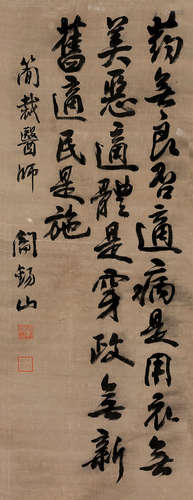 药無良否適病是用衣無
美惡適體是穿政無新
舊適民是施
簡裁醫師
閻錫山